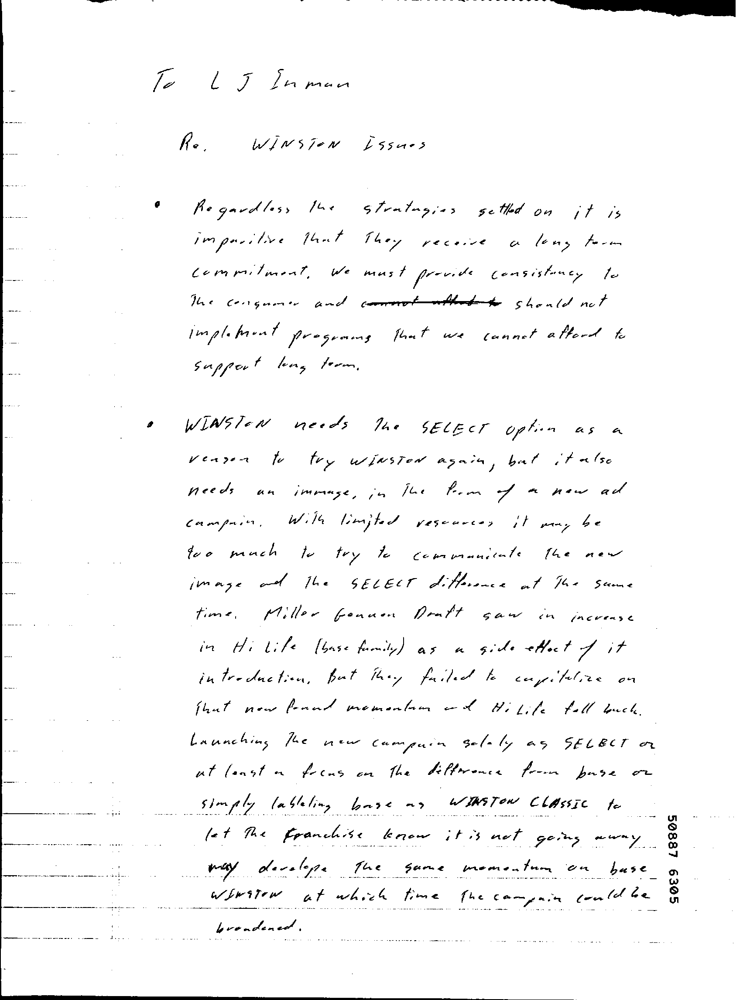 To L J Inman
Re. WINSTON Issues
• Regardless the strategies settled on it is
imparitive that they receive a long term
commitment. We must provide consistency to
the consumer and cannot afford to should not
implement programs that we cannot afford to
support long term.
• WINSTON needs the SELECT option as a
reason to try WINSTON again, but it also
needs an immage, in the form of a new ad
campain. With limited resources it may be
too much to try to communicate the new
image and the SELECT difference at the same
time. Miller Genuen Draft saw in increase
in Hi Life (base family) as a side effect of it
introduction. But they failed to capitalize on
that new found momentum and Hi Life fell back.
Launching the new campain solely as SELECT or
at least a focus on the difference from base or
simply labeling base as WINSTON CLASSIC to
let the franchise know it is not going away
may develope the same momentum on base
WINSTON at which time the campain could be
broadened.
50887 6305